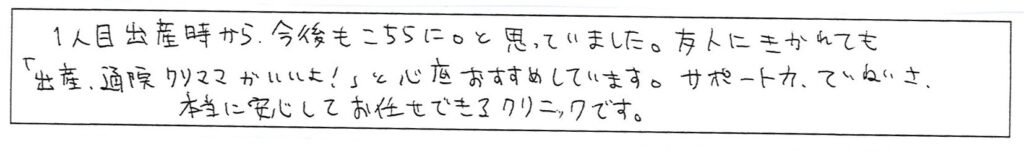 1人目出産時から、今後もこちらに。と思っていました。友人にきかれても
「出産、通院クリママがいいよ!」と心底おすすめしています。サポート力、ていねいさ、
本当に安心してお任せできるクリニックです。